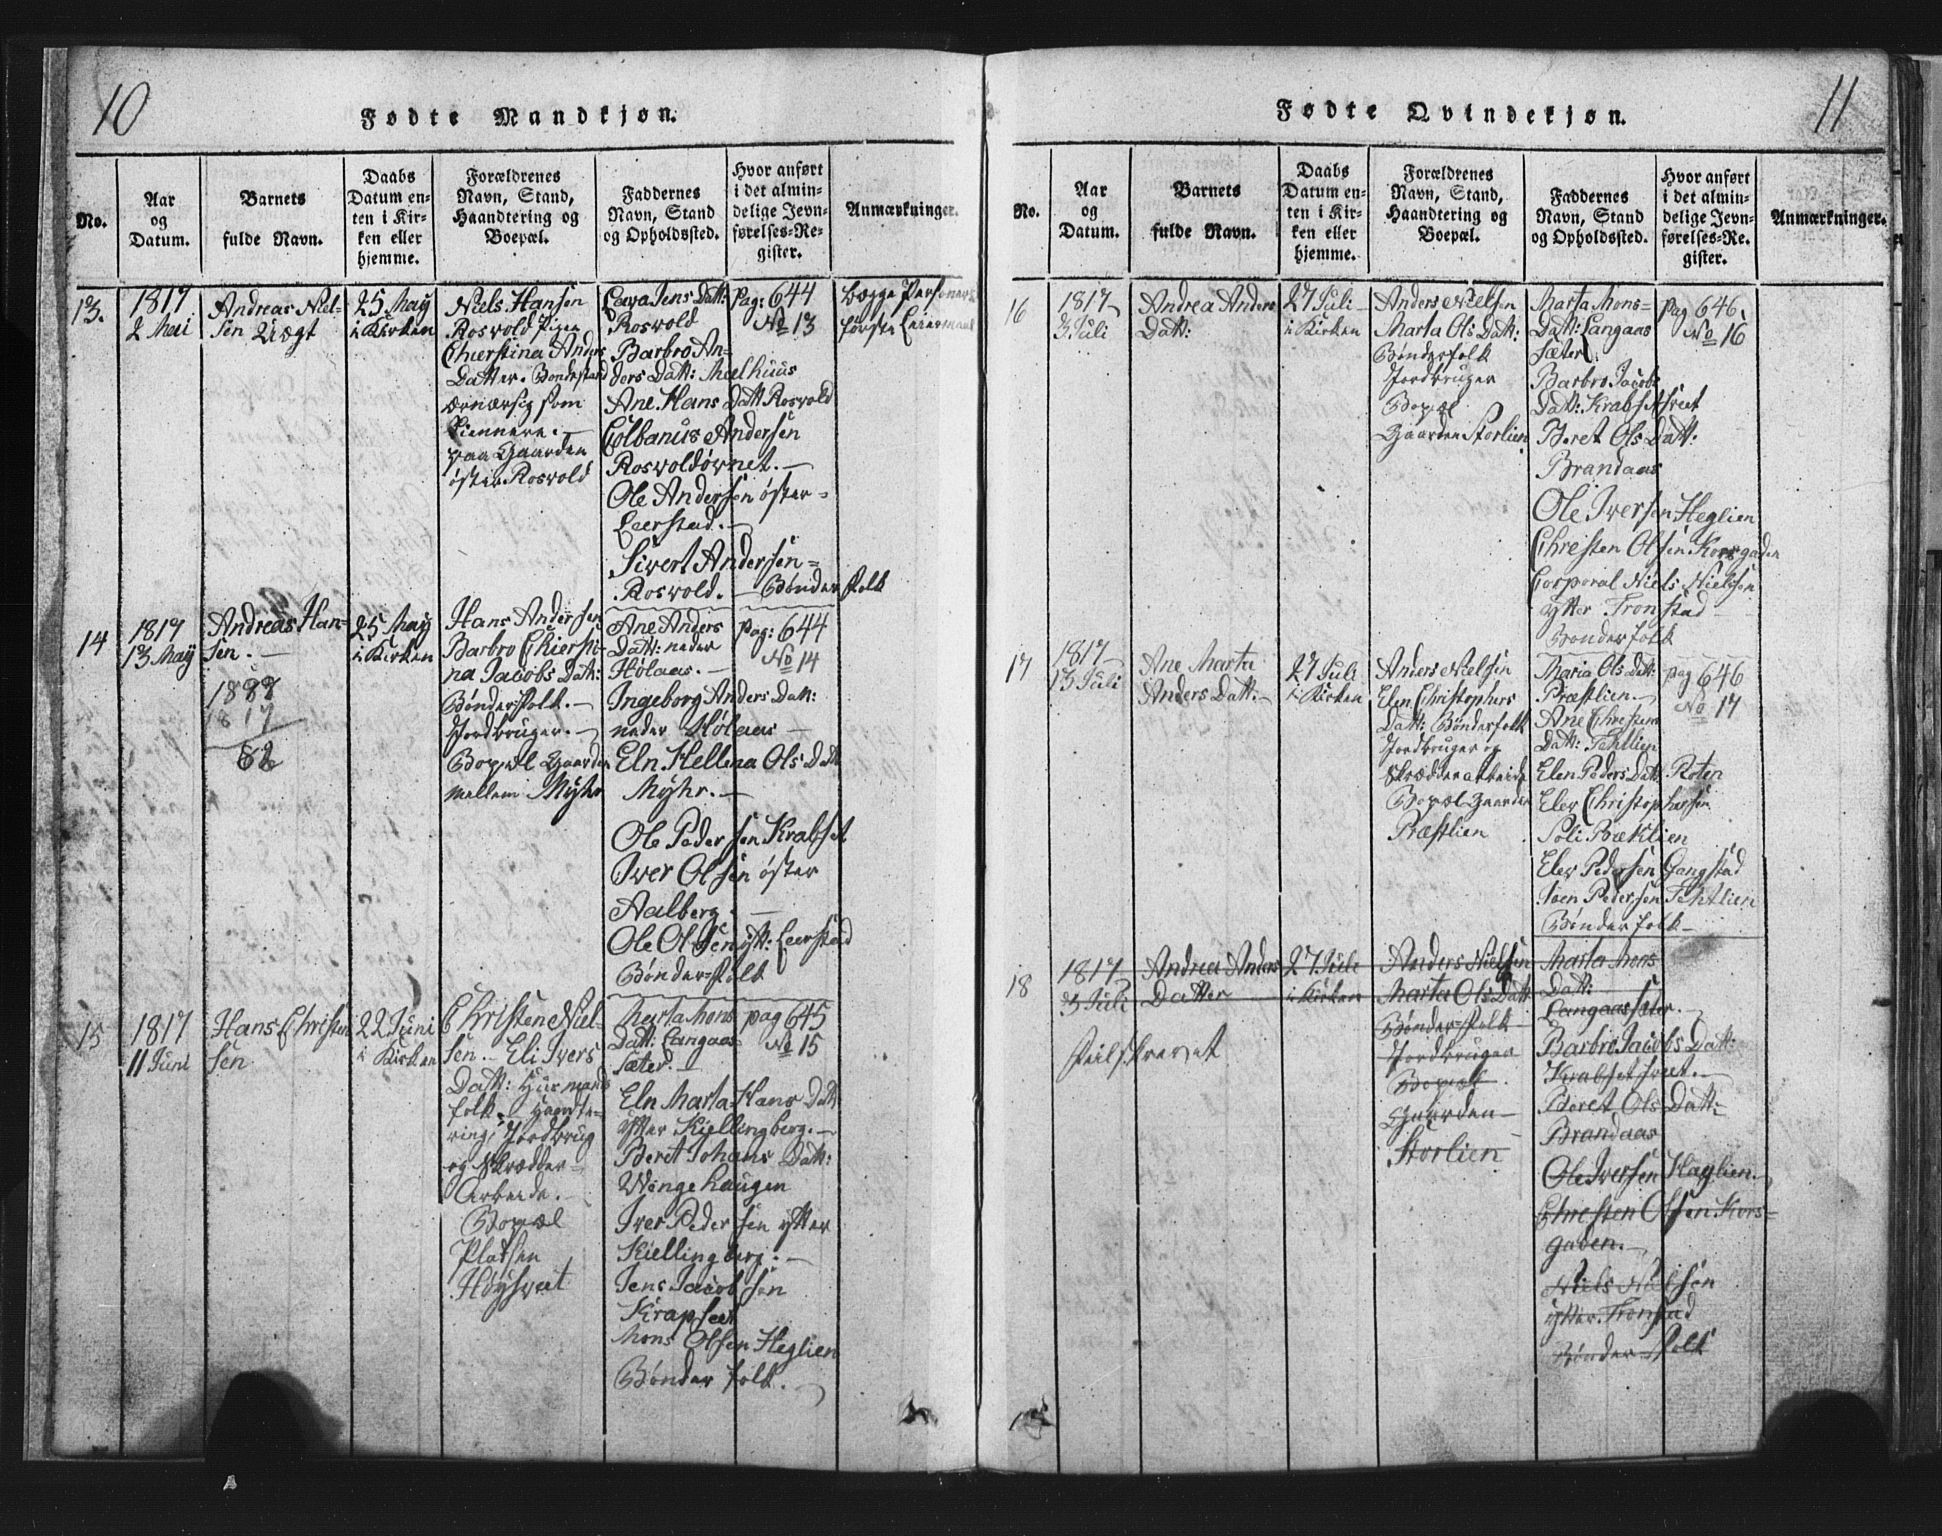 10
Fødte Mandkjøn.
No.
Aar
og
Datum.
Barnets
fulde Navn.
Daabs
Datum en-
ten i Kir-
ken eller
hjemme.
Forældrenes
Navn, Stand,
Haandtering og
Boepæl.
Faddernes
Navn, Stand
og Opholdssted.
Hvor anført
i det almin-
delige Jevn-
førelses-Re-
gister.
Anmærkninger.
13.
1817
2 Mai
Andreas Niel-
sen Uægt
25 May
i Kirken
Niels Hansen
Rosvold Pigen
Chierstina Anders
Datter. Bondestand
ernærsig som
tiennere. —
paa Gaarden
øster Rosvold
Jens Datt:
Rosvold
Barbro An-
ders Datt: Melhuus
Ane Hans Datt Rosvold
Colbanus Andersen
Rosvoldøvnet. —
Ole Andersen øster-
Leerstad. —
Sivert Andersen-
Rosvold. — Bønder folk
Pag: 644
No 13
begge Personers
første Leiermaal
14
1817
13 May
Andreas Han-
sen. —
1899
1817
82
25 May
i Kirken
Hans Andersen
Barbro Chiersti-
na Jacobs Datt:
Bønderfolk. —
Jordbruger. —
Bopæl Gaarden
mellem Myhr
Ane Anders
Datt: neder
Hølaas. —
Ingeborg Anders Datt:
neder Hølaas —
Eln Hellena Ols Datt
Myhr. —
Ole Pedersen Krabset
Iver Olsen øster
Aalberg. —
Ole Olsen ytt: Leerstad
Bønder-folk
Pag: 644
No 14
15
1817
11 Juni
Hans Christen
sen
22 Juni
i Kirken
Christen Niel-
sen. Eli Ivers
Datt: Husmands
folk. Haandte-
ring, Jordbrug
og Skrædder-
Arbeide. —
Bopæl
Platsen
Høysvet
Marta Mons
Datt: Langaas-
sæter. —
Eln Marta Hans Datt
ytter Kiellingberg. —
Berit Johans Datt:
Wingehaugen
Iver Pedersen ytter
Kiellingberg. —
Jens Jacobsen
Krapseet
Mons Olsen Heglien
Bønder folk. —
pag 645
No 15
11
Fødte Qvindekjøn.
No.
Aar
og
Datum.
Barnets
fulde Navn.
Daabs
Datum en-
ten i Kir-
ken eller
hjemme.
Forældrenes
Navn, Stand,
Haandtering og
Boepæl.
Faddernes
Navn, Stand
og Opholdssted.
Hvor anført
i det almin-
delige Jevn-
førelses-Re-
gister.
Anmærkninger.
16
1817
3 Juli
Andrea Anders
Datt:
27 Juli
i Kirken
Anders Nielsen
Marta Ols Datt:
Bønderfolk
Jordbruger
Bopæl
Gaarden Storlien
Marta Mons-
Datt: Langaas
sæter
Barbro Jacobs
Datt: Krabsetsveet
Beret Ols Datt:
Brandaas
Ole Iversen Heglien
Christen Olsen Korsgaden
Corporal Niels Nielsen
ytter Tronstad
Bønderfolk
pag 646,
No 16
17
1817
13 Juli
Ane Marta
Anders Datt. —
27 Juli
i Kirken
Anders Nielsen
Elen Christophers
Datt: Bønderfolk
Jordbruger og
Skrædderarbeide
Bopæl Gaarden
Præstlien
Maria Ols Datt:
Præstlien. —
Ane Christens
Datt: Fehtlien
Elen Peders Datt. Roten
Elev Christophersen
Bæklien
Elev Pedersen Gangstad
Sven Pedersen Fehtlien
Bønderfolk —
pag 646
No 17
18
1817
3 Juli
Andrea Anders
Datter
Feilskrevet
27 Juli
i Kirken
Anders Nielsen
Marta Ols Datt
Bønder-folk
Jordbruger
Bopæl
Gaarden —
Storlien
Marta Mons
Datt:
Langaassæter. —
Barbro Jacobs Datt:
Krabsetsveet. —
Beret Ols Datt:
Brandaas
Ole Iversen Haglien. —
Christen Olsen Kors-
gaden. —
Niels Nielsen
ytter Tronstad
Bønder-folk